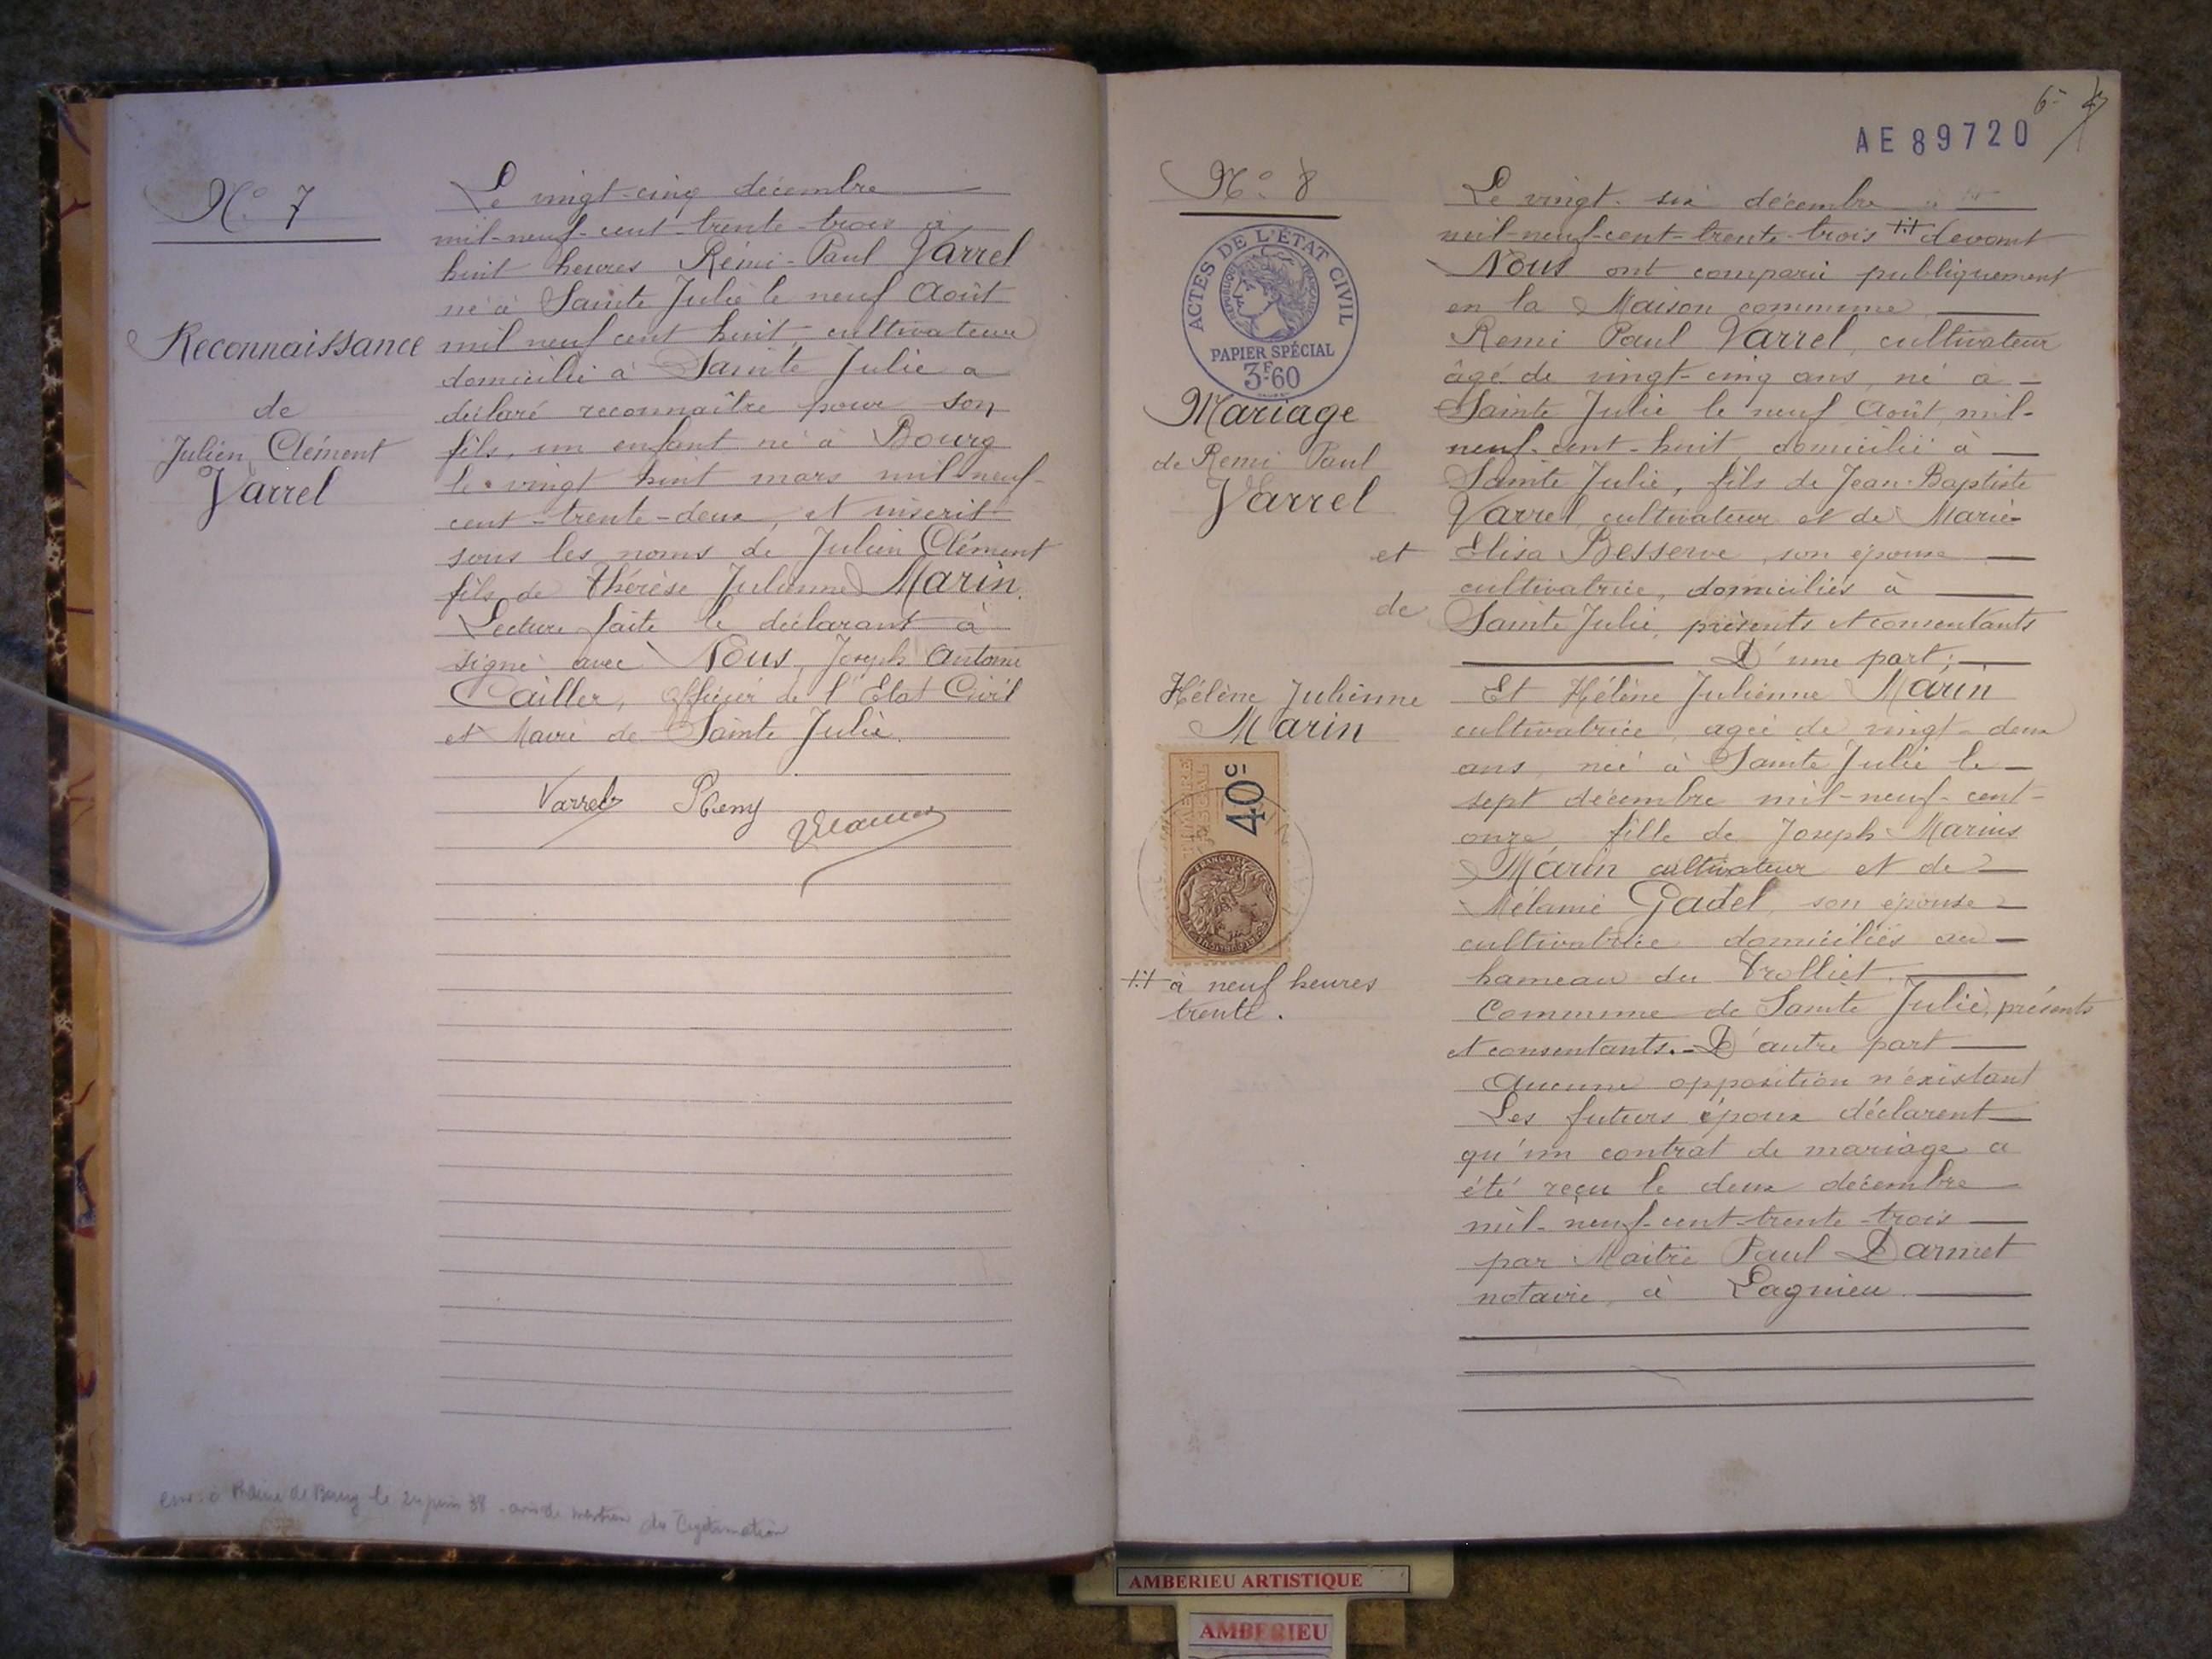 N° 7
Reconnaissance
de
Julien Clément
Varrel
Le vingt-cinq décembre
mil-neuf-cent-trente-trois à
huit heures Rémi-Paul Varrel
né à Sainte Julie le neuf Août
mil neuf cent huit, cultivateur
domicilié à Sainte Julie a
déclaré reconnaître pour son
fils, un enfant né à Bourg
le vingt huit mars mil neuf-
cent-trente-deux, et inscrit
sous les noms de Julien Clément
fils de Thérèse Julienne Marin.
Lecture faite le déclarant à
signé avec Nous, Joseph Antoine
Cailler, officier de l'Etat Civil
et Maire de Sainte Julie.
Varrel Remy
le 24 juin 38 - avis de mention de légitimation
6-
AE 89720
N° 8
ACTES DE L'ÉTAT CIVIL
RÉPUBLIQUE FRANÇAISE
PAPIER SPÉCIAL
3F60
Mariage
de Remi Paul
Varrel
et
de
Hélène Julienne
Marin
TIMBRE
FISCAL
40c
à neuf heures
trente.
Le vingt-six décembre
mil-neuf-cent-trente-trois devant
Nous ont comparu publiquement
en la Maison commune
Remi Paul Varrel, cultivateur
âgé de vingt-cinq ans, né à
Sainte Julie le neuf Août mil-
neuf-cent-huit, domicilié à
Sainte Julie, fils de Jean-Baptiste
Varrel, cultivateur et de Marie-
Elisa Besserve, son épouse
cultivatrice, domiciliés à
Sainte Julie, présents et consentants
D'une part;
Et Hélène Julienne Marin
cultivatrice, agée de vingt-deux
ans, née à Sainte Julie le
sept décembre mil-neuf-cent-
onze, fille de Joseph Marius
Marin cultivateur et de
Mélanie Gadel, son épouse
cultivatrice domiciliés au
hameau du Trolliet.
Commune de Sainte Julie, présents
et consentants.- D'autre part
Aucune opposition n'existant
Les futurs époux déclarent
qu'un contrat de mariage a
été reçu le deux décembre
mil-neuf-cent-trente-trois
par Maitre Paul Darmet
notaire, à Lagnieu
AMBERIEU ARTISTIQUE
AMBERIEU